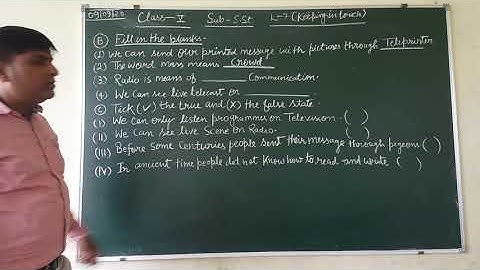 09/09/20 Class-V Sub-S.St L-7 (Keeping in touch)
(B) Fill in the blanks-
(1) We can send our printed message with pictures through Teleprinter
(2) The word mass means Crowd
(3) Radio is means of ________ Communication.
(4) We can see live telecast on ________
(C) Tick (✓) the true and (X) the false state.
(I) We can only listen programmes on Television- ( )
(II) We can see live Scene on Radio- ( )
(III) Before Some Centuries people sent their message through pegeons ( )
(IV) In ancient time people did not know how to read and write ( )